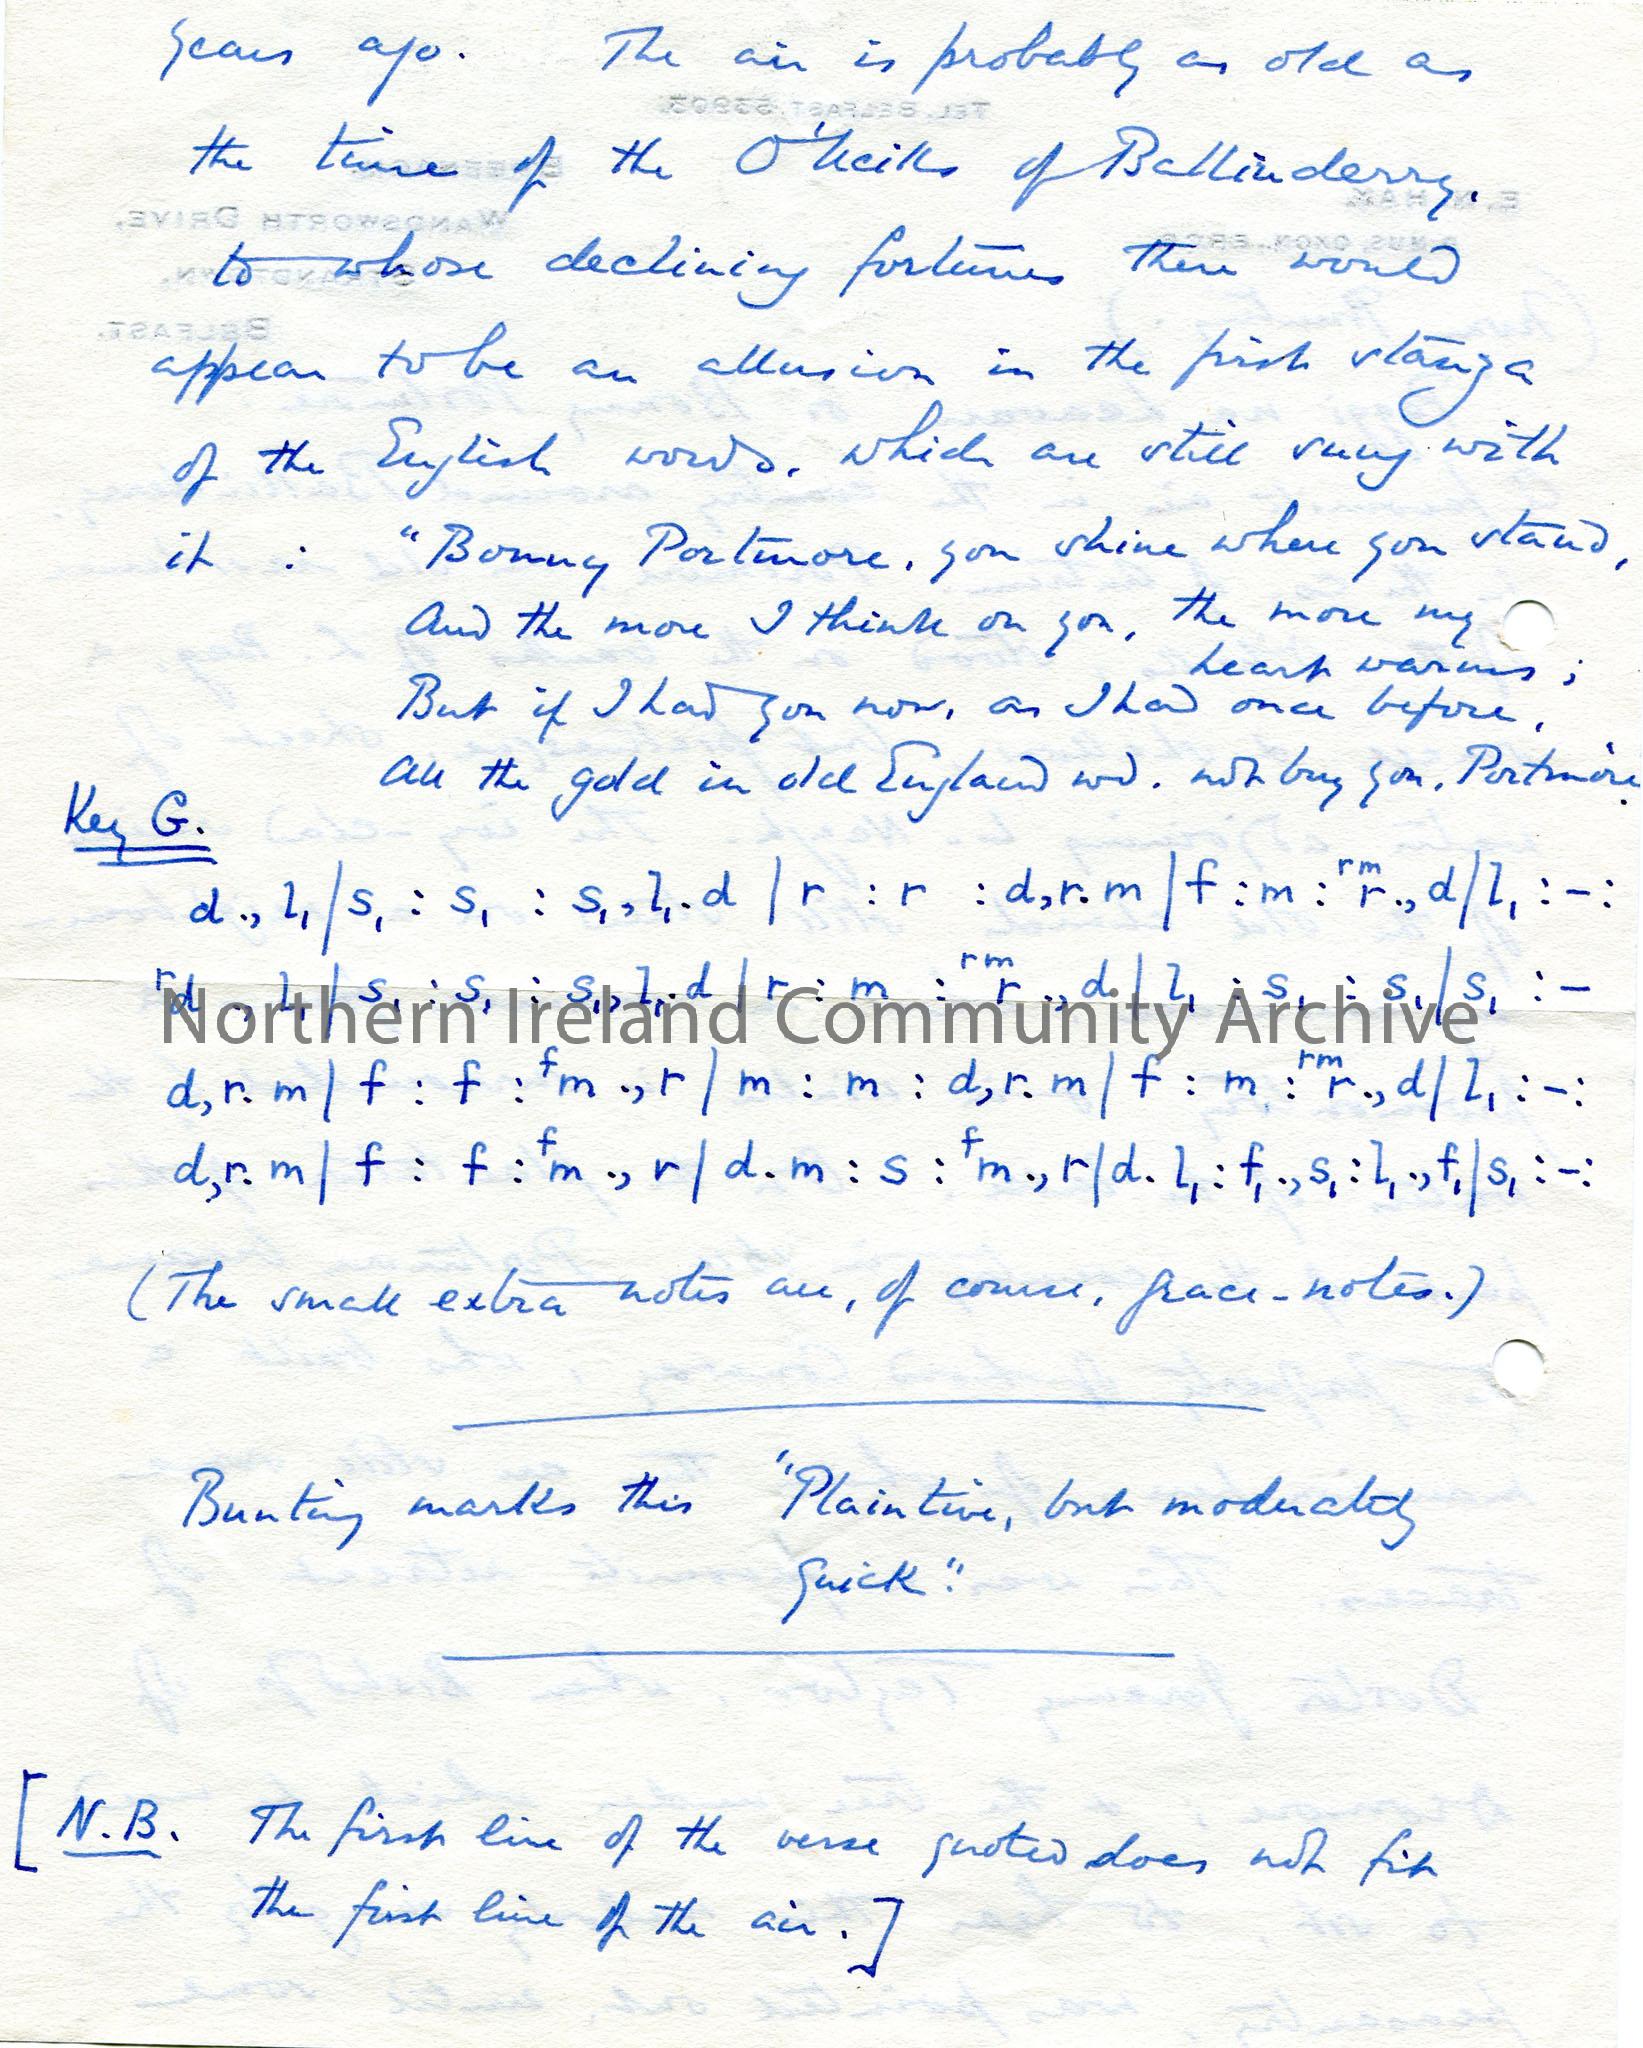 years ago. The air is probably as old as
the time of the O'Neills of Ballinderry,
to whose declining fortunes there would
appear to be an allusion in the first stanza
of the English words, which are still sung with
it : "Bonny Portmore, you shine where you stand,
And the more I think on you, the more my
heart warms ;
But if I had you now, as I had once before,
All the gold in old England wd. not buy you, Portmore.
Key G.
d .,l₁/s₁ : s₁ : s₁,l₁.d / r : r : d,r.m / f : m : ʳᵐr.,d / l₁ : – :
ʳd .,l₁/s₁ : s₁ : s₁,l₁.d / r : m : ʳᵐr.,d / l₁ : s₁ : s₁ / s₁ : –
Northern Ireland Community Archive
d,r.m / f : f : ᶠm.,r / m : m : d,r.m / f : m : ʳᵐr.,d / l₁ : – :
d,r.m / f : f : ᶠm.,r / d.m : s : ᶠm.,r / d.l₁ : f₁.,s₁ : l₁.,f₁ / s₁ : – :
(The small extra notes are, of course, grace-notes.)
Bunting marks this "Plaintive, but moderately
quick".
[N.B. The first line of the verse quoted does not fit
the first line of the air.]